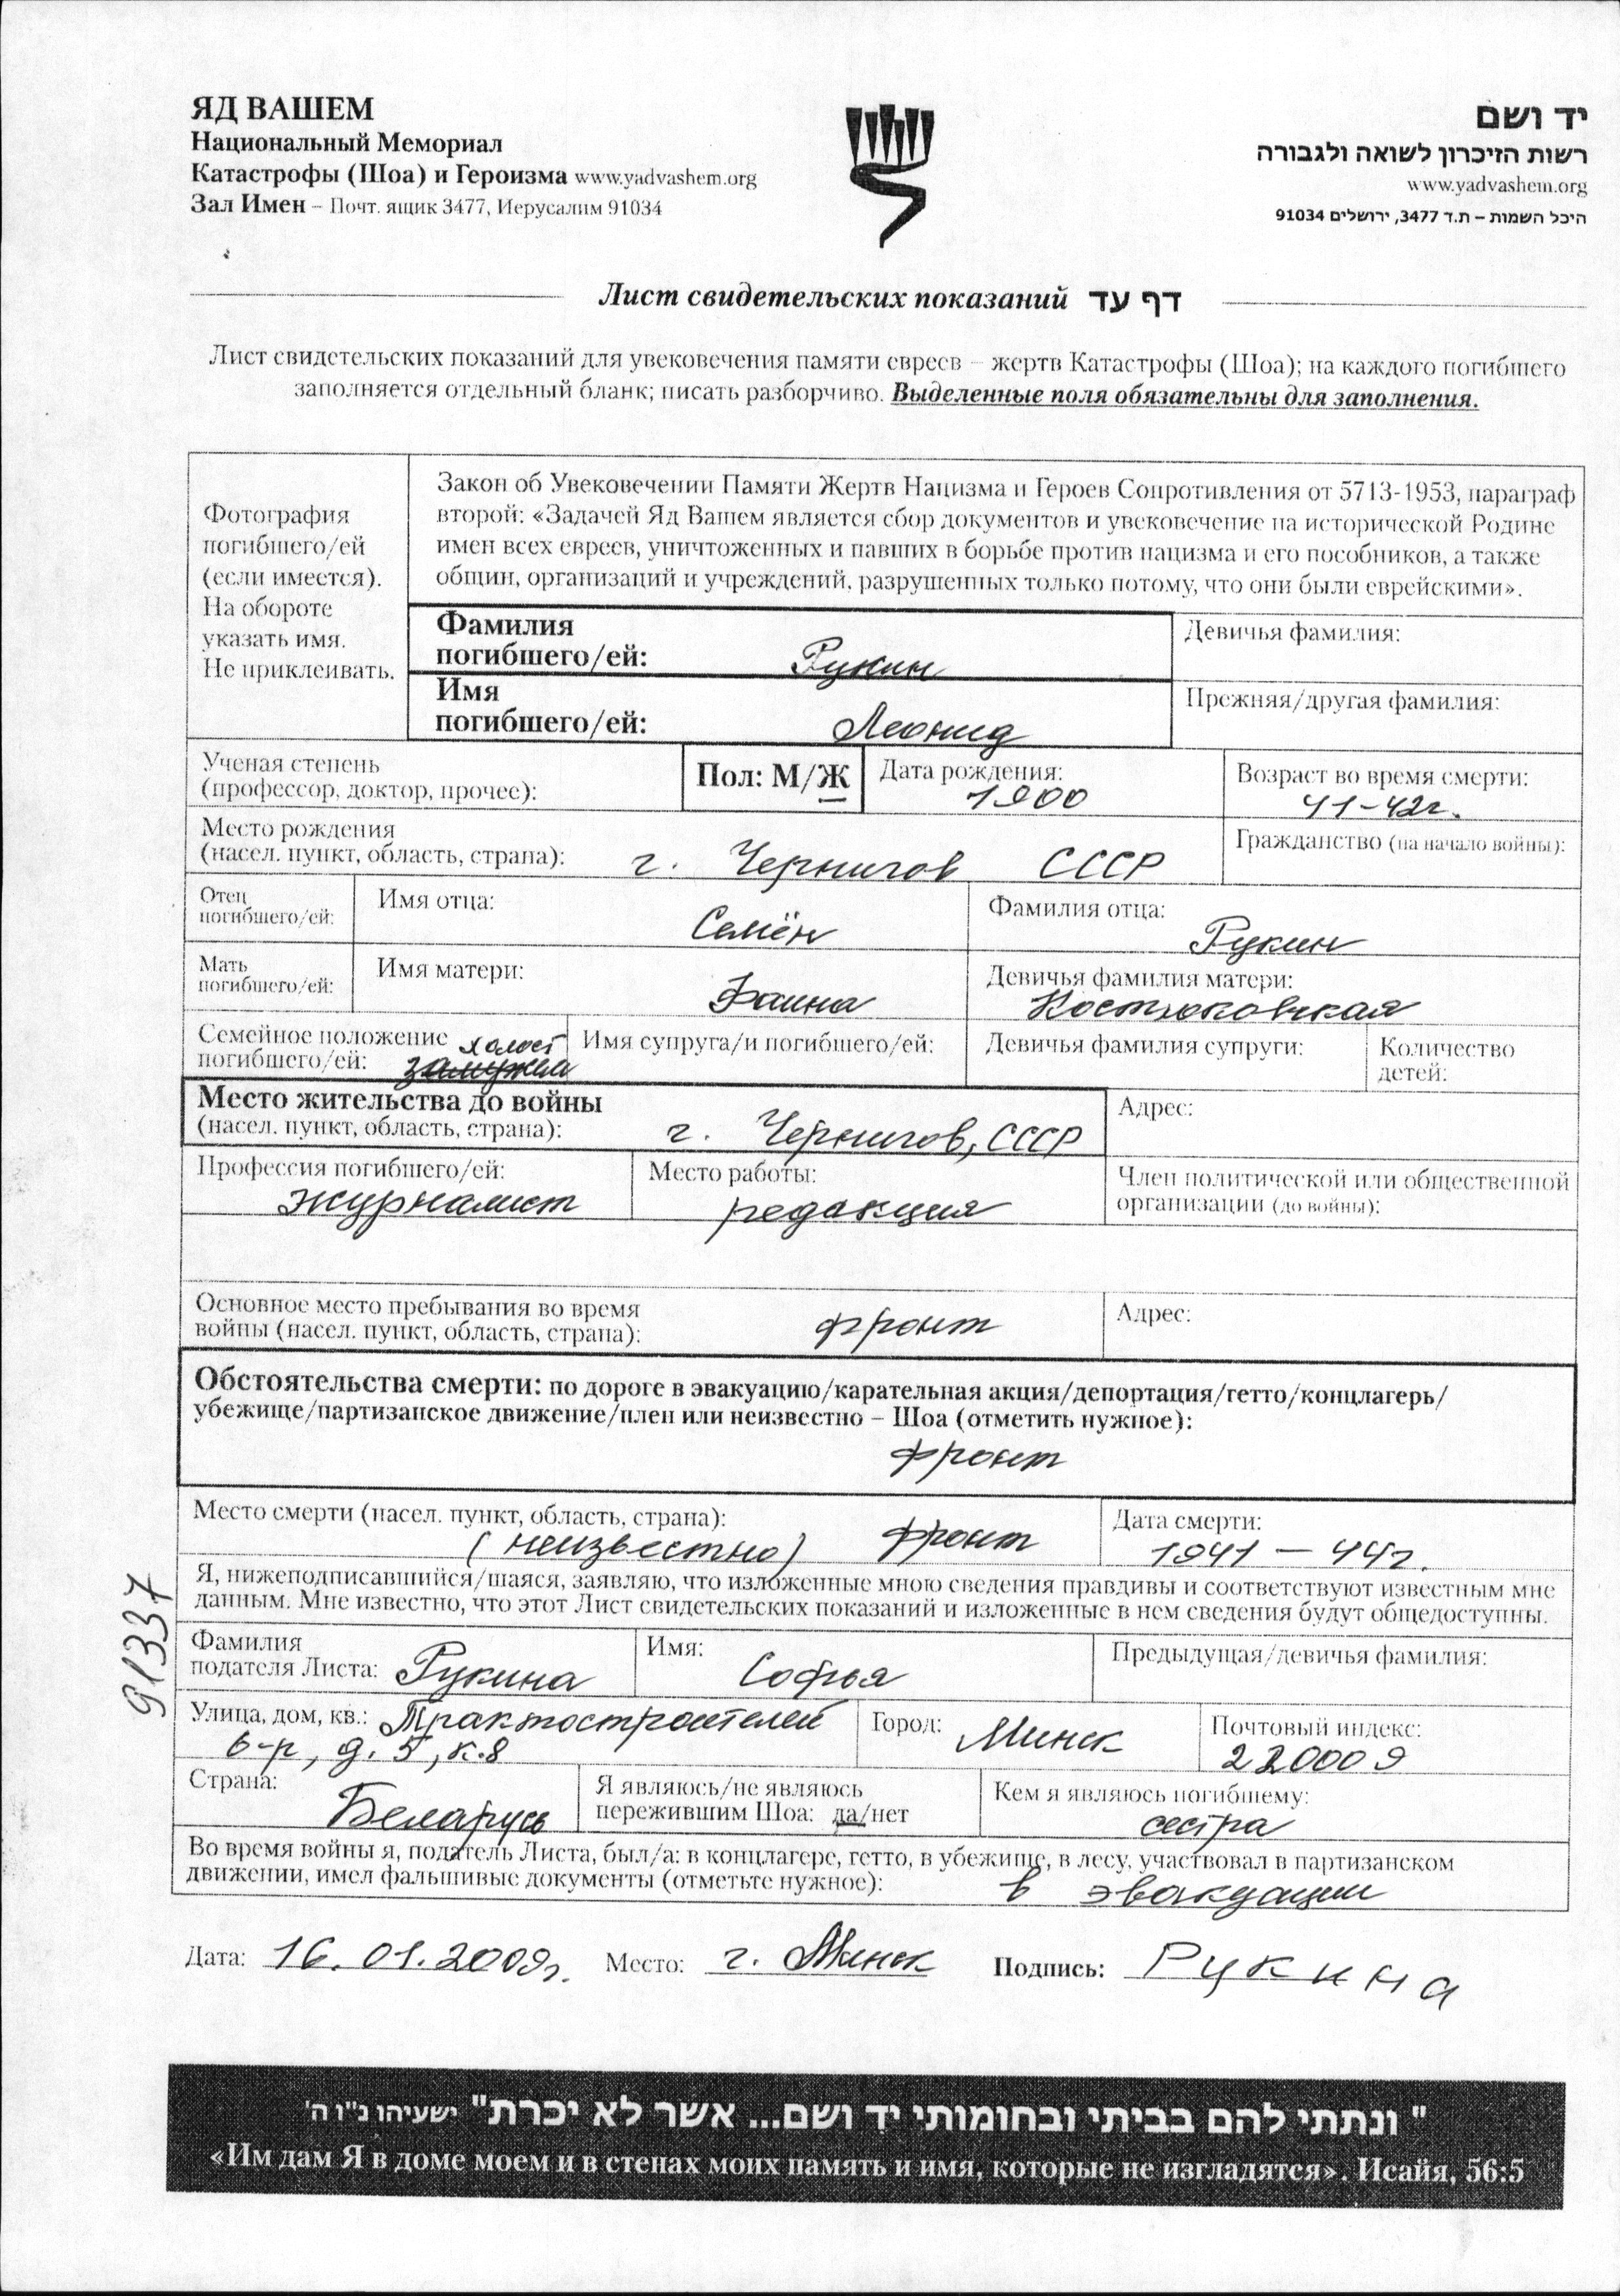 ЯД ВАШЕМ
Национальный Мемориал
Катастрофы (Шоа) и Героизма www.yadvashem.org
Зал Имен – Почт. ящик 3477, Иерусалим 91034
יד ושם
רשות הזיכרון לשואה ולגבורה
www.yadvashem.org
היכל השמות – ת.ד 3477, ירושלים 91034
Лист свидетельских показаний דף עד
Лист свидетельских показаний для увековечения памяти евреев – жертв Катастрофы (Шоа); на каждого погибшего
заполняется отдельный бланк; писать разборчиво. Выделенные поля обязательны для заполнения.
Фотография
погибшего/ей
(если имеется).
На обороте
указать имя.
Не приклеивать.
Закон об Увековечении Памяти Жертв Нацизма и Героев Сопротивления от 5713-1953, параграф
второй: «Задачей Яд Вашем является сбор документов и увековечение на исторической Родине
имен всех евреев, уничтоженных и павших в борьбе против нацизма и его пособников, а также
общин, организаций и учреждений, разрушенных только потому, что они были еврейскими».
Фамилия
погибшего/ей: Рукин
Девичья фамилия:
Имя
погибшего/ей: Леонид
Прежняя/другая фамилия:
Ученая степень
(профессор, доктор, прочее):
Пол: М/Ж
Дата рождения:
1900
Возраст во время смерти:
41-42г.
Место рождения
(насел. пункт, область, страна): г. Чернигов СССР
Гражданство (на начало войны):
Отец
погибшего/ей:
Имя отца: Семён
Фамилия отца:
Рукин
Мать
погибшего/ей:
Имя матери: Фаина
Девичья фамилия матери:
Костюковская
Семейное положение холост
погибшего/ей: замужем
Имя супруга/и погибшего/ей:
Девичья фамилия супруги:
Количество
детей:
Место жительства до войны
(насел. пункт, область, страна): г. Чернигов, СССР
Адрес:
Профессия погибшего/ей:
журналист
Место работы:
редакция
Член политической или общественной
организации (до войны):
Основное место пребывания во время
войны (насел. пункт, область, страна): фронт
Адрес:
Обстоятельства смерти: по дороге в эвакуацию/карательная акция/депортация/гетто/концлагерь/
убежище/партизанское движение/плен или неизвестно – Шоа (отметить нужное):
фронт
Место смерти (насел. пункт, область, страна):
(неизвестно) фронт
Дата смерти:
1941 – 44г.
Я, нижеподписавшийся/шаяся, заявляю, что изложенные мною сведения правдивы и соответствуют известным мне
данным. Мне известно, что этот Лист свидетельских показаний и изложенные в нем сведения будут общедоступны.
91337
Фамилия
подателя Листа: Рукина
Имя:
Софья
Предыдущая/девичья фамилия:
Улица, дом, кв.: Трактостроителей
б-р, д. 5, к.8
Город: Минск
Почтовый индекс:
220009
Страна:
Беларусь
Я являюсь/не являюсь
пережившим Шоа: да/нет
Кем я являюсь погибшему:
сестра
Во время войны я, податель Листа, был/а: в концлагере, гетто, в убежище, в лесу, участвовал в партизанском
движении, имел фальшивые документы (отметьте нужное): в эвакуации
Дата: 16.01.2009г. Место: г. Минск Подпись: Рукина
"ונתתי להם בביתי ובחומותי יד ושם... אשר לא יכרת" ישעיהו נ"ו ה'
«Им дам Я в доме моем и в стенах моих память и имя, которые не изгладятся». Исайя, 56:5